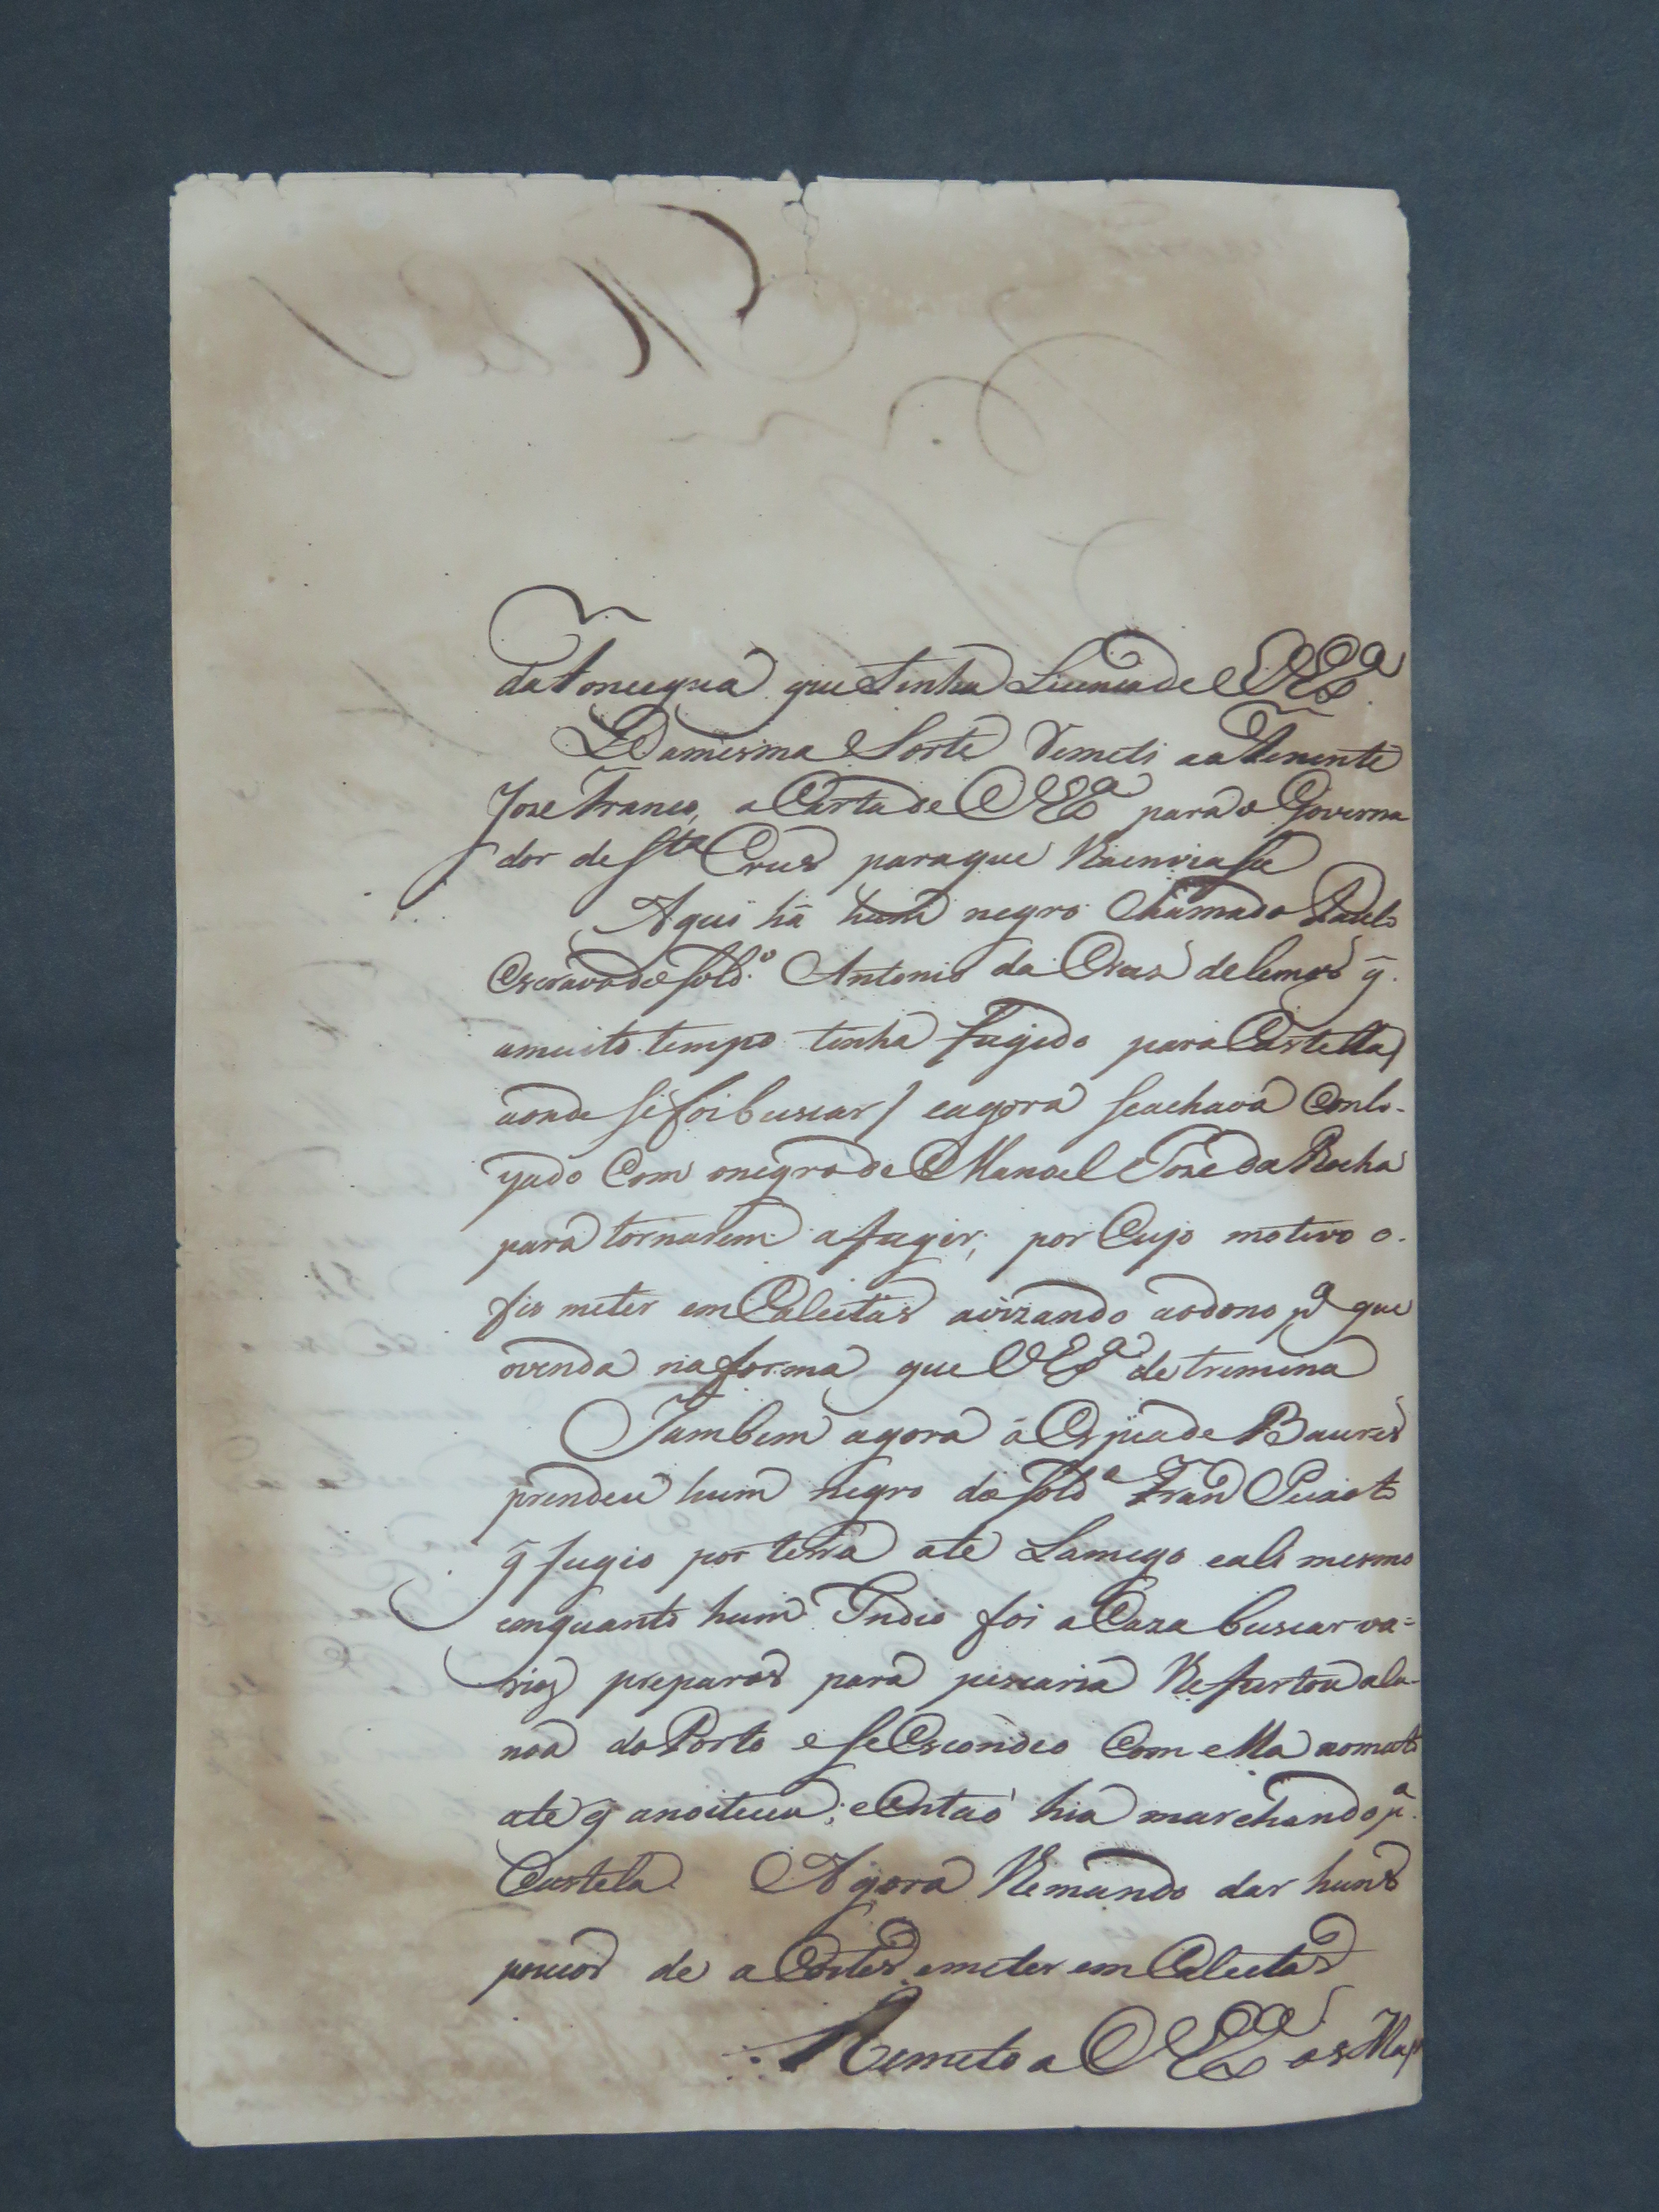 que tinha Licença de VEx.ª
Da mesma Sorte Remeti ao Tenente
Joze Franco, a Carta de VEx.ª para o Governa
dor de S.ta Crus para que
Aqui há hum negro Chamado Paulo
Escravo do Sold.º Antonio da Crus de Lemos q̃.
a muito tempo tinha fugido para Castella,
aonde se foi buscar / e agora se achava Conlo-
yado Com o negro de Manoel Joze da Rocha
para tornarem a fugir; por Cujo motivo o.
fis meter em Calcetas avizando ao dono p.ª que
o venda na forma que VEx.ª detremina
Tambem agora a Espia de Baures
prendeu hum negro do Sold.º Fran
q̃ fugio por terra ate Lamego e ali mesmo
emquanto hum Indio foi a Caza buscar va=
rios preparos para pescaria lhe furtou a Ca-
noa do Porto e se Escondeo Com ella no mato
ate q anoiteceu; e Então hia marchando p.ª
Castela. Agora lhe mando dar huns
poucos de a Coites e meter em Calcetas
Remeto a VEx.ª os Map